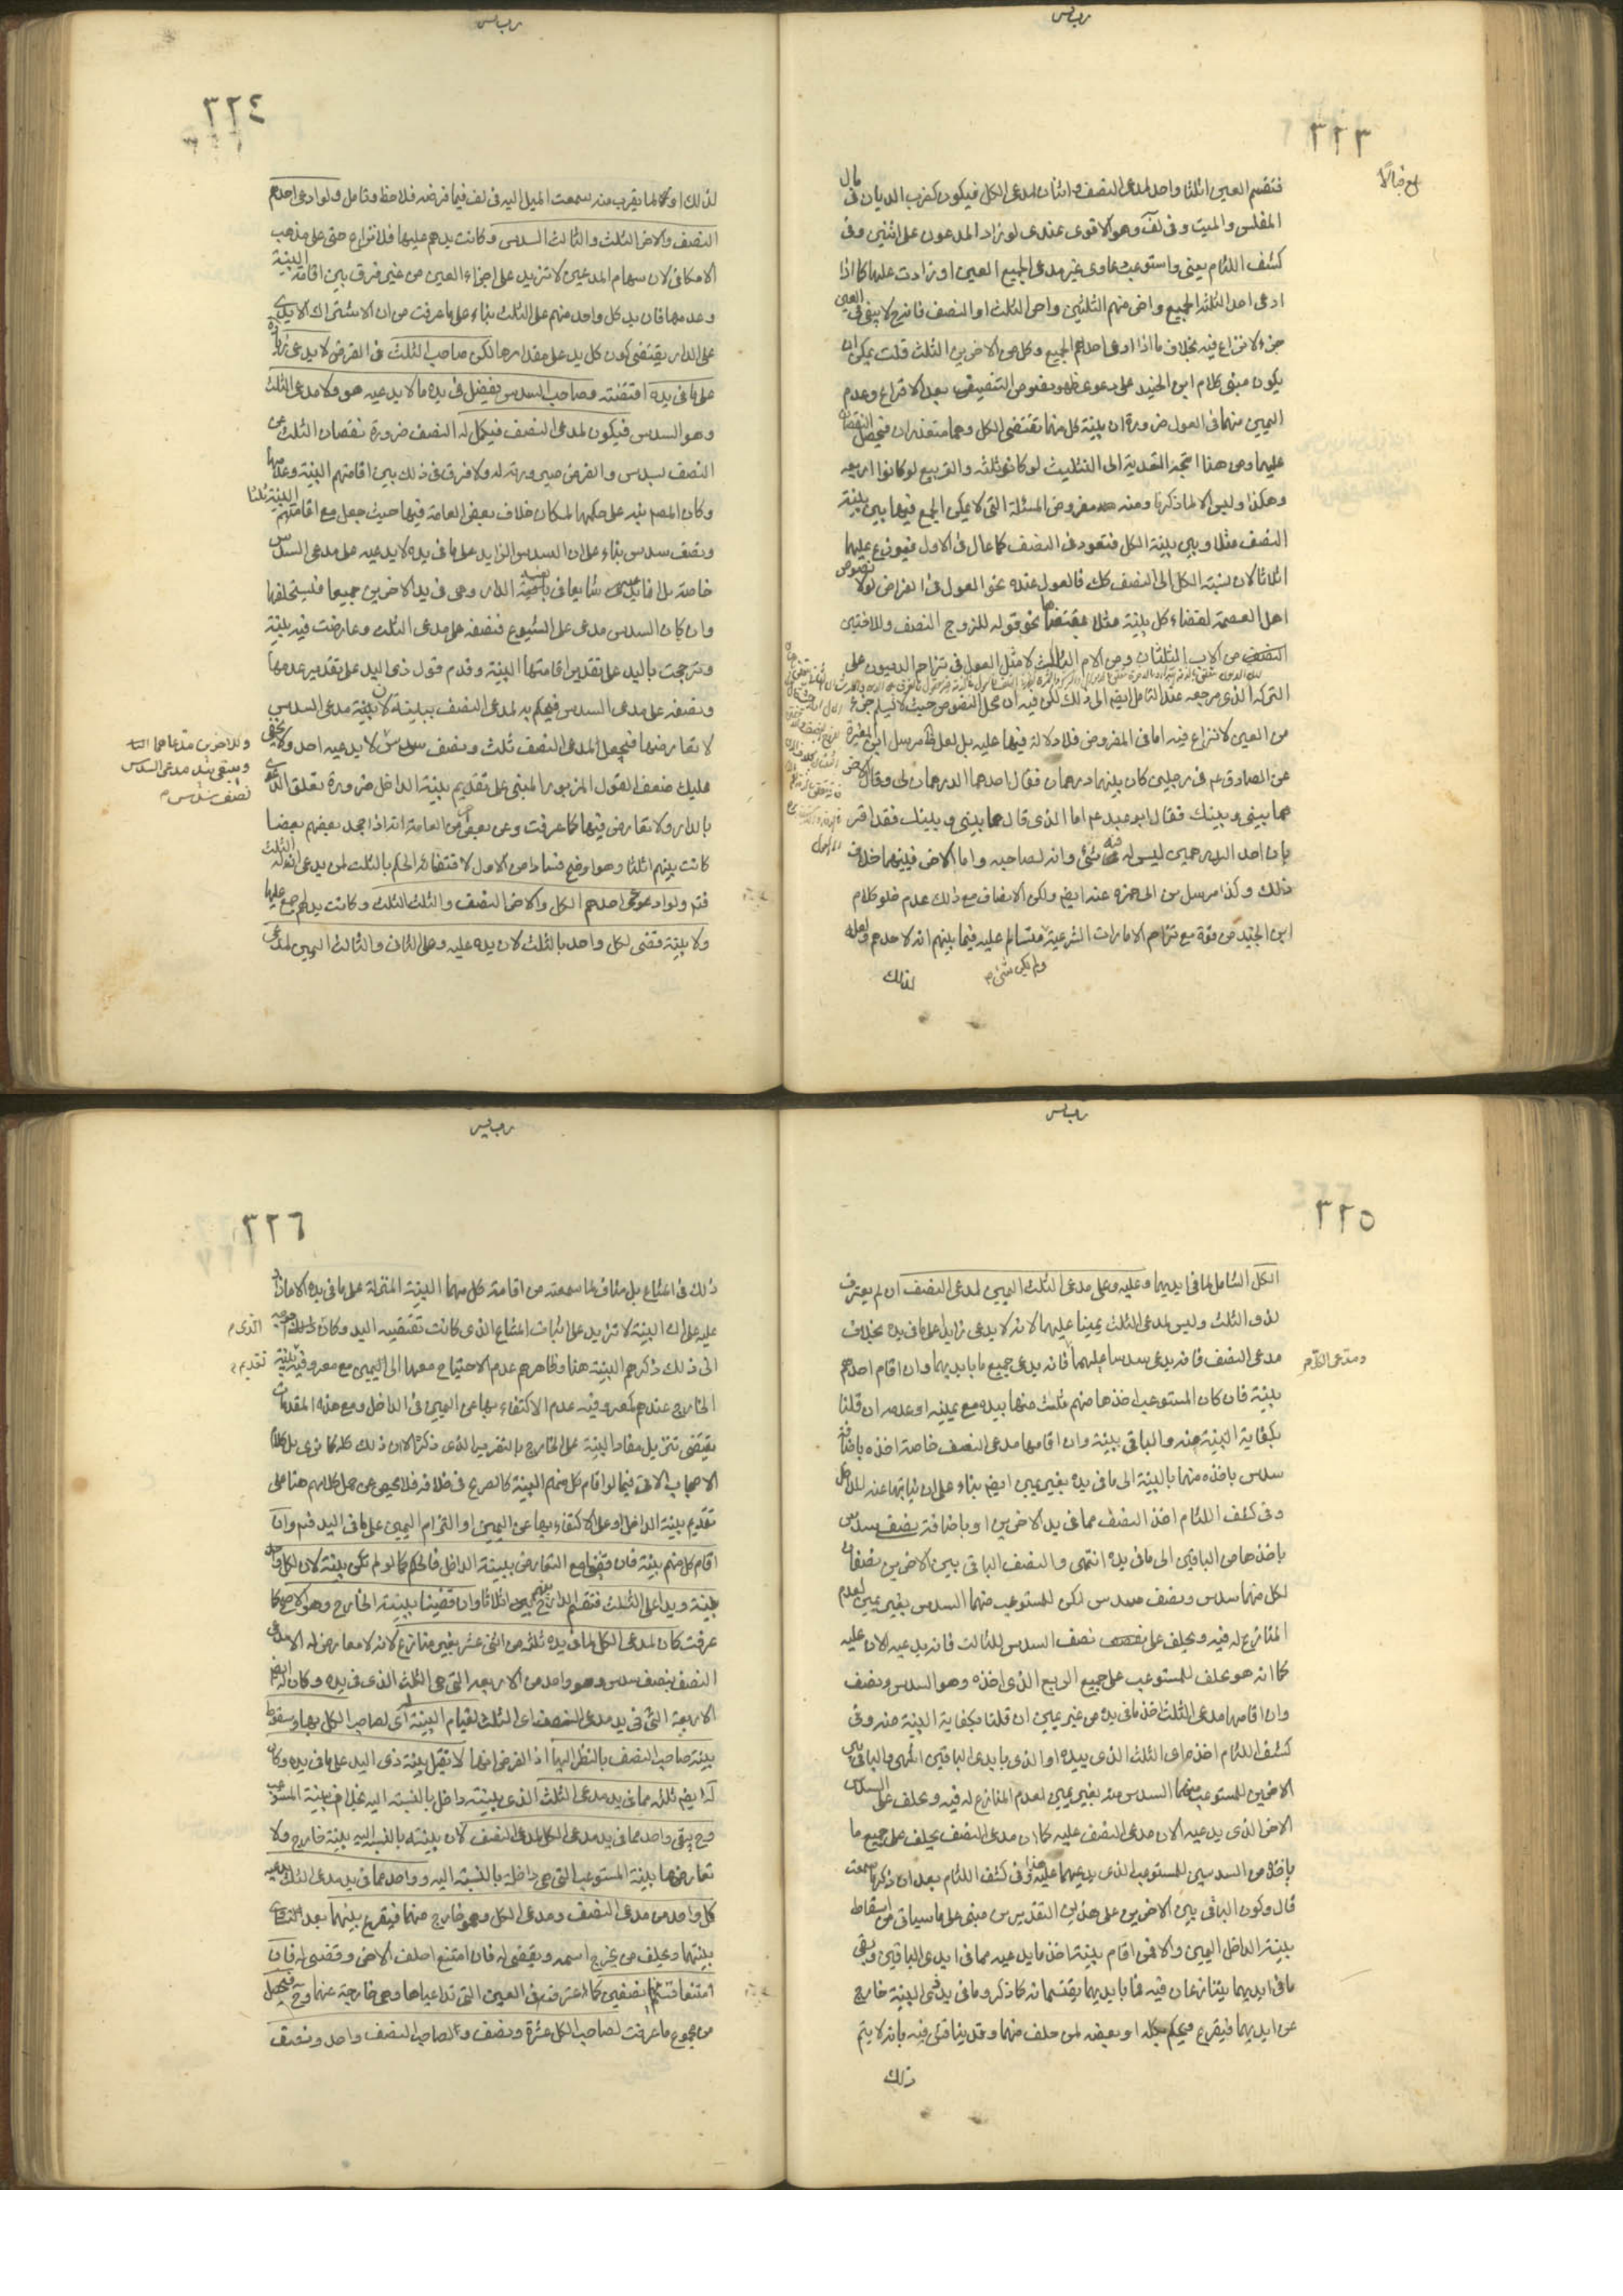 ٣٢٣
فتقسم العين اثلثا واحد لمدعى النصف واثنان لمدعى الكل فيكون كضرب الديان فى مال
المفلس والميت وفى لف وهو الاقوى عندى لو زاد المدعون على اثنين وفى
كشف اللثام يعنى واستوعبت دعاوى غير مدعى الجميع العين او زادت عليها كما اذا
ادعى احد الثلثة الجميع واخر منهم الثلثين واخر الثلث او النصف فانه ح لا يبقى فى العين
جزء لا نزاع فيه بخلاف ما اذا ادعى احدهم الجميع وكل من الاخرين الثلث قلت يمكن ان
يكون مبنى كلام ابن الجنيد على دعوى ظهور نصوص التنصيف بعد الاقراع وعدم
اليمين منهما فى العول ضرورة ان بينة كل منهما تقتضى الكل وهما متعذران فيحصل النقصان
عليهما ومن هنا اتجه التعدية الى التثليث لو كانو ثلثه والتربيع لو كانوا اربعه
وهكذا وليس الا لما ذكرنا ومنه مفروض المسئلة التى لا يمكن الجمع فيها بين بينة
النصف مثلا وبين بينة الكل فتعود فى النصف كما عال فى الاول فيوزع عليهما
اثلاثا لان نسبته الكل الى النصف كك فالعول عنده نحو العول فى الفرائض لولا نصوص
اهل العصمة لقضاء كل بينة مثلا بمقتضاها نحو قوله للزوج النصف وللاختين
من الاب الثلثان ومن الام الثالث لا مثل العول فى تزاحم الديون على
التركه الذى مرجعه عند التامل ايضا الى ذلك لكن فيه ان محل النصوص حيث لا يسلم جزء
من العين لا نزاع فيه اما فى المفروض فلا دلالة فيها عليه بل لعل مرسل ابن المغيرة
عن الصادق عم فى رجلين كان بينهما درهمان فقال احدهما الدرهمان لى وقال الاخر
هما بينى وبينك فقال ابو عبد عم اما الذى قال هما بينى وبينك فقد اقر
بان احد الدرهمين ليس له فيه شئ وانه لصاحبه واما الاخر فبينهما خلاف
ذلك وكذا مرسل بن ابى حمزه عنه ايض ولكن الانصاف مع ذلك عدم خلو كلام
ابن الجنيد من قوة مع تزاحم الامارات الشرعية متسالم عليه فيما بينهم انه لاحدهم ولعله
ولم يكن شئ
لذلك
٣٢٤
لذلك او لما يقرب منه سمعت الميل اليه فى لف فيما فرضه فلاحظ وتامل ولو ادعى احدهم
النصف والاخر الثلث والثالث السدس وكانت يدهم عليها فلا نزاع حتى على مذهب
الاسكافى لان سهام المدعين لا تزيد على اجزاء العين من غير فرق بين اقامة البينة
وعدمها فان يد كل واحد منهم على الثلث بناء على ما عرفت من ان الاشتراك الايدى
على الدار يقتضى كون كل يد على مقدارها لكن صاحب الثلث فى الفرض لا يدعى زيادة
على ما فى يده اقتضته وصاحب السدس يفضل فى يده ما لا يدعيه هو ولا مدعى الثلث
وهو السدس فيكون لمدعى النصف فيكمل له النصف ضرورة نقصان الثلث عن
النصف بسدس والفرض صيرورته له ولا فرق فى ذلك بين اقامتهم البينة وعدمها
وكان المصم نبه على حكمها لمكان خلاف بعض العامة فيها حيث جعل مع اقامتهم البينة ثلثا
ونصف سدس بناء على ان السدس الزايد على ما فى يده لا يدعيه على مدعى السدس
خاصة بل انما يدعى شايعا فى بقية الدار وهى فى يد الاخرين جميعا فليستحلفها
وان كان السدس مدعى على الشيوع فنصفه على مدعى الثلث وعارضت فيه بينة
وترجحت باليد على تقدير اقامتها البينة وقدم قول ذى اليد على تقدير عدمها
ونصفه على مدعى السدس فيحكم به لمدعى النصف ببينة لان بينة مدعى السدس
لا تعارضها فيحصل لمدعى النصف ثلث ونصف سدس لا يدعيه احد ولا يخفى
وللاخرين مدعاهما
ويبقى بيد مدعى السدس
نصف سدس
عليك ضعف القول المزبور المبنى على تقديم بينة الداخل ضرورة تعلق الدعوى
بالدار ولا تعارض فيها كما عرفت وعن بعض من العامة انه اذا جحد بعضهم بعضا
كانت بينهم اثلثا وهو اوضح فسادا من الاول لاقتضائه الحكم بالثلث لمن يدعى انه له الثلث
فتم ولو ادعى احدهم الكل والاخر النصف والثالث الثلث وكانت يدهم جمع عليها
ولا بينة قضى لكل واحد بالثلث لان يده عليه وعلى الثانى والثالث اليمين لمدعى
٣٢٥
الكل الشامل لما فى ايديهما وعليه وعلى مدعى الثلث اليمين لمدعى النصف ان لم يعترف
لذو الثلث وليس لمدعى الثلث يمينا عليهما لانه لا يدعى زايدا على ما فى يده بخلاف
مدعى النصف فانه يدعى سدسا عليهما فانه يدعى جميع ما بايديهما وان اقام احدهم
ومدعى الكل
بينة فان كان المستوعب اخذها منهم ثلث منها بيده مع يمينه او عدمه ان قلنا
بكفاية البينة عنه والباقى ببينة وان اقامها مدعى النصف خاصة اخذه باضافة
سدس باخذه منهما بالبينة الى ما فى يده بغير يمين ايضم بناء على ان نيابتها عنه للداخل
وفى كشف اللثام اخذ النصف مما فى يد الاخرين او باضافة نصف سدس
باخذها من الباقين الى ما فى يده انتهى والنصف الباقى بين الاخرين نصفان
لكل منهما سدس ونصف سدس لكن للمستوعب منهما السدس بغير يمين لعدم
المنازع له فيه ويحلف على نصف السدس للثالث فانه يدعيه الان عليه
كما انه هو يحلف للمستوعب على جميع الربع الذى اخذه وهو السدس ونصف
وان اقامها مدعى الثلث اخذ ما فى يده من غير يمين ان قلنا بكفاية البينة عنه وفى
كشف اللثام اخذه اى الثلث الذى بيده او الذى بايدى الباقين انتهى والباقى بين
الاخرين للمستوعب منهما السدس منه بغير يمين لعدم المنازع له فيه ويحلف على السدس
الاخر الذى يدعيه الان مدعى النصف عليه كما ان مدعى النصف يحلف على جميع ما
ياخذه من السدسين للمستوعب الذى يدعيهما عليه هذا وفى كشف اللثام بعد ان ذكر ما سمعت
قال وكون الباقى بين الاخرين على هذين التقديرين مبنى على ما سياتى من اسقاط
بينة الداخل اليمين والا فمن اقام بينة اخذ ما يدعيه مما فى ايدى الباقين وبقى
ما فى ايديهما يتنازعان فيه فما بايديهما يقتسمانه كما ذكر وما فى يد ذى البينة خارج
عن ايديهما فيقرع فيحكم بكله او بعضه لمن حلف منهما وقد يناقش فيه بانه لا يتم
ذلك
٣٢٦
ذلك فى اعتناع بل مناف لما سمعته من اقامة كل منهما البينة المنزلة على ما فى يده الا ما زاد
عليه على ان البينة لا تزيد على اثبات اعتناع الذى كانت تقتضيه اليد وكان
الذى
الى ذلك ذكرهم البينة هنا وظاهرهم عدم الاحتياج معها الى اليمين مع معروفية بينة
تقديم
الخارج عندهم كمعروفية عدم الاكتفاء بها عن اليمين فى الداخل ومع هذه المقدمات
يقتضى تنزيل مفاد البينة على الخارج بالتقرير الذى ذكره الان ذلك كله كما ترى بل كلام
الاصحاب الاتى فيما لو اقام كل منهم البينة كالصريح فى خلافه فلا محيص عن حمل كلامهم هنا على
تقديم بينة الداخل او على الاكتفاء بها عن اليمين او التزام اليمين على ما فى اليد فتم وان
اقام كل منهم بينة فان قضينا مع التعارض ببينة الداخل فالحكم كما لو لم تكن بينة لان لكل واحد
بينة ويدا على الثلث فتقسم الدار بينهم اثلاثا وان قضينا ببينة الخارج وهو الاصح كما
عرفت كان لمدعى الكل مما فى يده ثلثه من اثنى عشر بغير منازع لانه لا معارض له الا مدعى
النصف بنصف سدس وهو واحد من الاربعة التى هى الثلث الذى فى يده وكان له ايضم
الاربعة التى فى يد مدعى النصف اى الثلث لقيام البينة اى لصاحب الكل بها وسقوط
بينة صاحب النصف بالنظر اليها اذ الفرض انها لا تقبل بينة ذى اليد على ما فى يده وكان
له ايضم ثلثه مما فى يد مدعى الثلث الذى بينته داخل بالنسبة اليه بخلاف بينة المستوعب
وح يبقى واحد مما فى يد مدعى الكل لمدعى النصف لان بينته بالنسبة اليه بينة خارج ولا
تعارضها بينة المستوعب التى هى داخلة بالنسبة اليه وواحد مما فى يد مدعى الثلث يدعيه
كل واحد من مدعى النصف ومدعى الكل وهو خارج عنهما فيقرع بينهما بعد تساوى
بينتهما ويحلف من يخرج اسمه ويقضى له فان امتنع احلف الاخر وقضى له فان
امتنعا قسم بينهما نصفين كما عرفته فى العين التى تداعياها وهى خارجة عنهما وح فيحصل
من مجموع ما عرفت لصاحب الكل عشرة ونصف ولصاحب النصف واحد ونصف